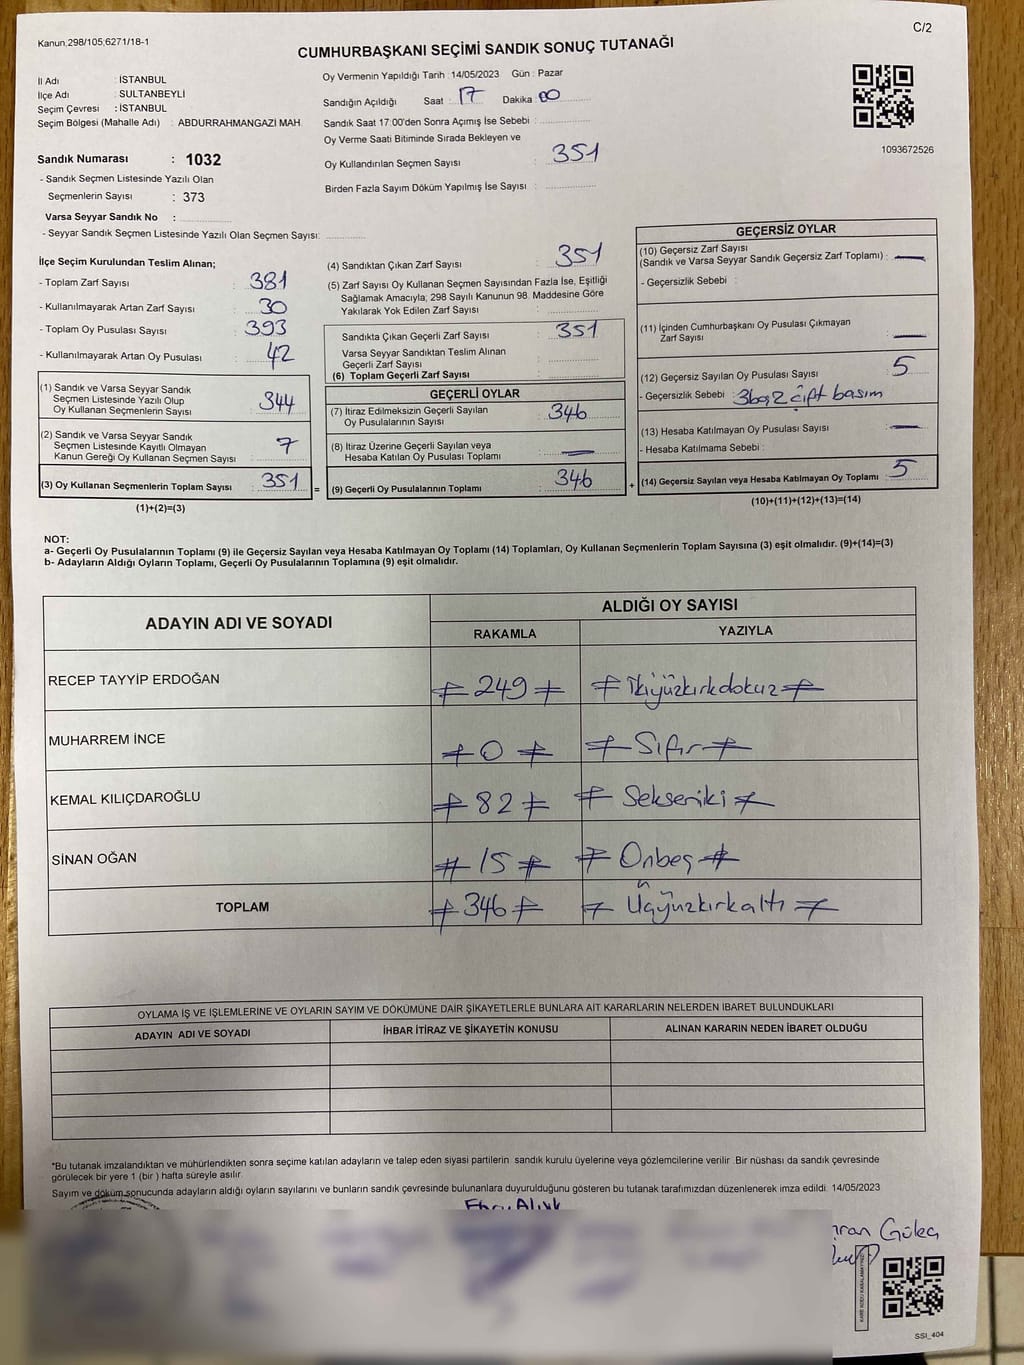 Kanun,298/105,6271/18-1
C/2
CUMHURBAŞKANI SEÇİMİ SANDIK SONUÇ TUTANAĞI
İl Adı : İSTANBUL
İlçe Adı : SULTANBEYLİ
Seçim Çevresi : İSTANBUL
Seçim Bölgesi (Mahalle Adı) : ABDURRAHMANGAZİ MAH.
Oy Vermenin Yapıldığı Tarih : 14/05/2023 Gün : Pazar
Sandığın Açıldığı Saat : 17 Dakika : 00
Sandık Saat 17:00'den Sonra Açımış İse Sebebi :
Oy Verme Saati Bitiminde Sırada Bekleyen ve
Oy Kullandırılan Seçmen Sayısı : 351
Birden Fazla Sayım Döküm Yapılmış İse Sayısı :
1093672526
Sandık Numarası : 1032
- Sandık Seçmen Listesinde Yazılı Olan
Seçmenlerin Sayısı : 373
Varsa Seyyar Sandık No :
- Seyyar Sandık Seçmen Listesinde Yazılı Olan Seçmen Sayısı:
İlçe Seçim Kurulundan Teslim Alınan;
- Toplam Zarf Sayısı : 381
- Kullanılmayarak Artan Zarf Sayısı : 30
- Toplam Oy Pusulası Sayısı : 393
- Kullanılmayarak Artan Oy Pusulası : 42
(1) Sandık ve Varsa Seyyar Sandık
Seçmen Listesinde Yazılı Olup
Oy Kullanan Seçmenlerin Sayısı : 344
(2) Sandık ve Varsa Seyyar Sandık
Seçmen Listesinde Kayıtlı Olmayan
Kanun Gereği Oy Kullanan Seçmen Sayısı : 7
(3) Oy Kullanan Seçmenlerin Toplam Sayısı : 351 =
(1)+(2)=(3)
(4) Sandıktan Çıkan Zarf Sayısı : 351
(5) Zarf Sayısı Oy Kullanan Seçmen Sayısından Fazla İse, Eşitliği
Sağlamak Amacıyla; 298 Sayılı Kanunun 98. Maddesine Göre
Yakılarak Yok Edilen Zarf Sayısı :
Sandıkta Çıkan Geçerli Zarf Sayısı : 351
Varsa Seyyar Sandıktan Teslim Alınan
Geçerli Zarf Sayısı :
(6) Toplam Geçerli Zarf Sayısı :
GEÇERLİ OYLAR
(7) İtiraz Edilmeksizin Geçerli Sayılan
Oy Pusulalarının Sayısı : 346
(8) İtiraz Üzerine Geçerli Sayılan veya
Hesaba Katılan Oy Pusulası Toplamı : —
(9) Geçerli Oy Pusulalarının Toplamı : 346 +
GEÇERSİZ OYLAR
(10) Geçersiz Zarf Sayısı
(Sandık ve Varsa Seyyar Sandık Geçersiz Zarf Toplamı) : —
- Geçersizlik Sebebi :
(11) İçinden Cumhurbaşkanı Oy Pusulası Çıkmayan
Zarf Sayısı : —
(12) Geçersiz Sayılan Oy Pusulası Sayısı : 5
- Geçersizlik Sebebi : 3boş 2 çift basım
(13) Hesaba Katılmayan Oy Pusulası Sayısı : —
- Hesaba Katılmama Sebebi :
(14) Geçersiz Sayılan veya Hesaba Katılmayan Oy Toplamı : 5
(10)+(11)+(12)+(13)=(14)
NOT:
a- Geçerli Oy Pusulalarının Toplamı (9) ile Geçersiz Sayılan veya Hesaba Katılmayan Oy Toplamı (14) Toplamları, Oy Kullanan Seçmenlerin Toplam Sayısına (3) eşit olmalıdır. (9)+(14)=(3)
b- Adayların Aldığı Oyların Toplamı, Geçerli Oy Pusulalarının Toplamına (9) eşit olmalıdır.
ADAYIN ADI VE SOYADI
ALDIĞI OY SAYISI
RAKAMLA YAZIYLA
RECEP TAYYİP ERDOĞAN 249 İkiyüzkırkdokuz
MUHARREM İNCE 0 Sıfır
KEMAL KILIÇDAROĞLU 82 Sekseniki
SİNAN OĞAN 15 Onbeş
TOPLAM 346 Üçyüzkırkaltı
OYLAMA İŞ VE İŞLEMLERİNE VE OYLARIN SAYIM VE DÖKÜMÜNE DAİR ŞİKAYETLERLE BUNLARA AIT KARARLARIN NELERDEN İBARET BULUNDUKLARI
ADAYIN ADI VE SOYADI İHBAR İTİRAZ VE ŞİKAYETİN KONUSU ALINAN KARARIN NEDEN İBARET OLDUĞU
*Bu tutanak imzalandıktan ve mühürlendikten sonra seçime katılan adayların ve talep eden siyasi partilerin sandık kurulu üyelerine veya gözlemcilerine verilir. Bir nüshası da sandık çevresinde
görülecek bir yere 1 (bir) hafta süreyle asılır.
Sayım ve döküm sonucunda adayların aldığı oyların sayılarını ve bunların sandık çevresinde bulunanlara duyurulduğunu gösteren bu tutanak tarafımızdan düzenlenerek imza edildi. 14/05/2023
SSI_404